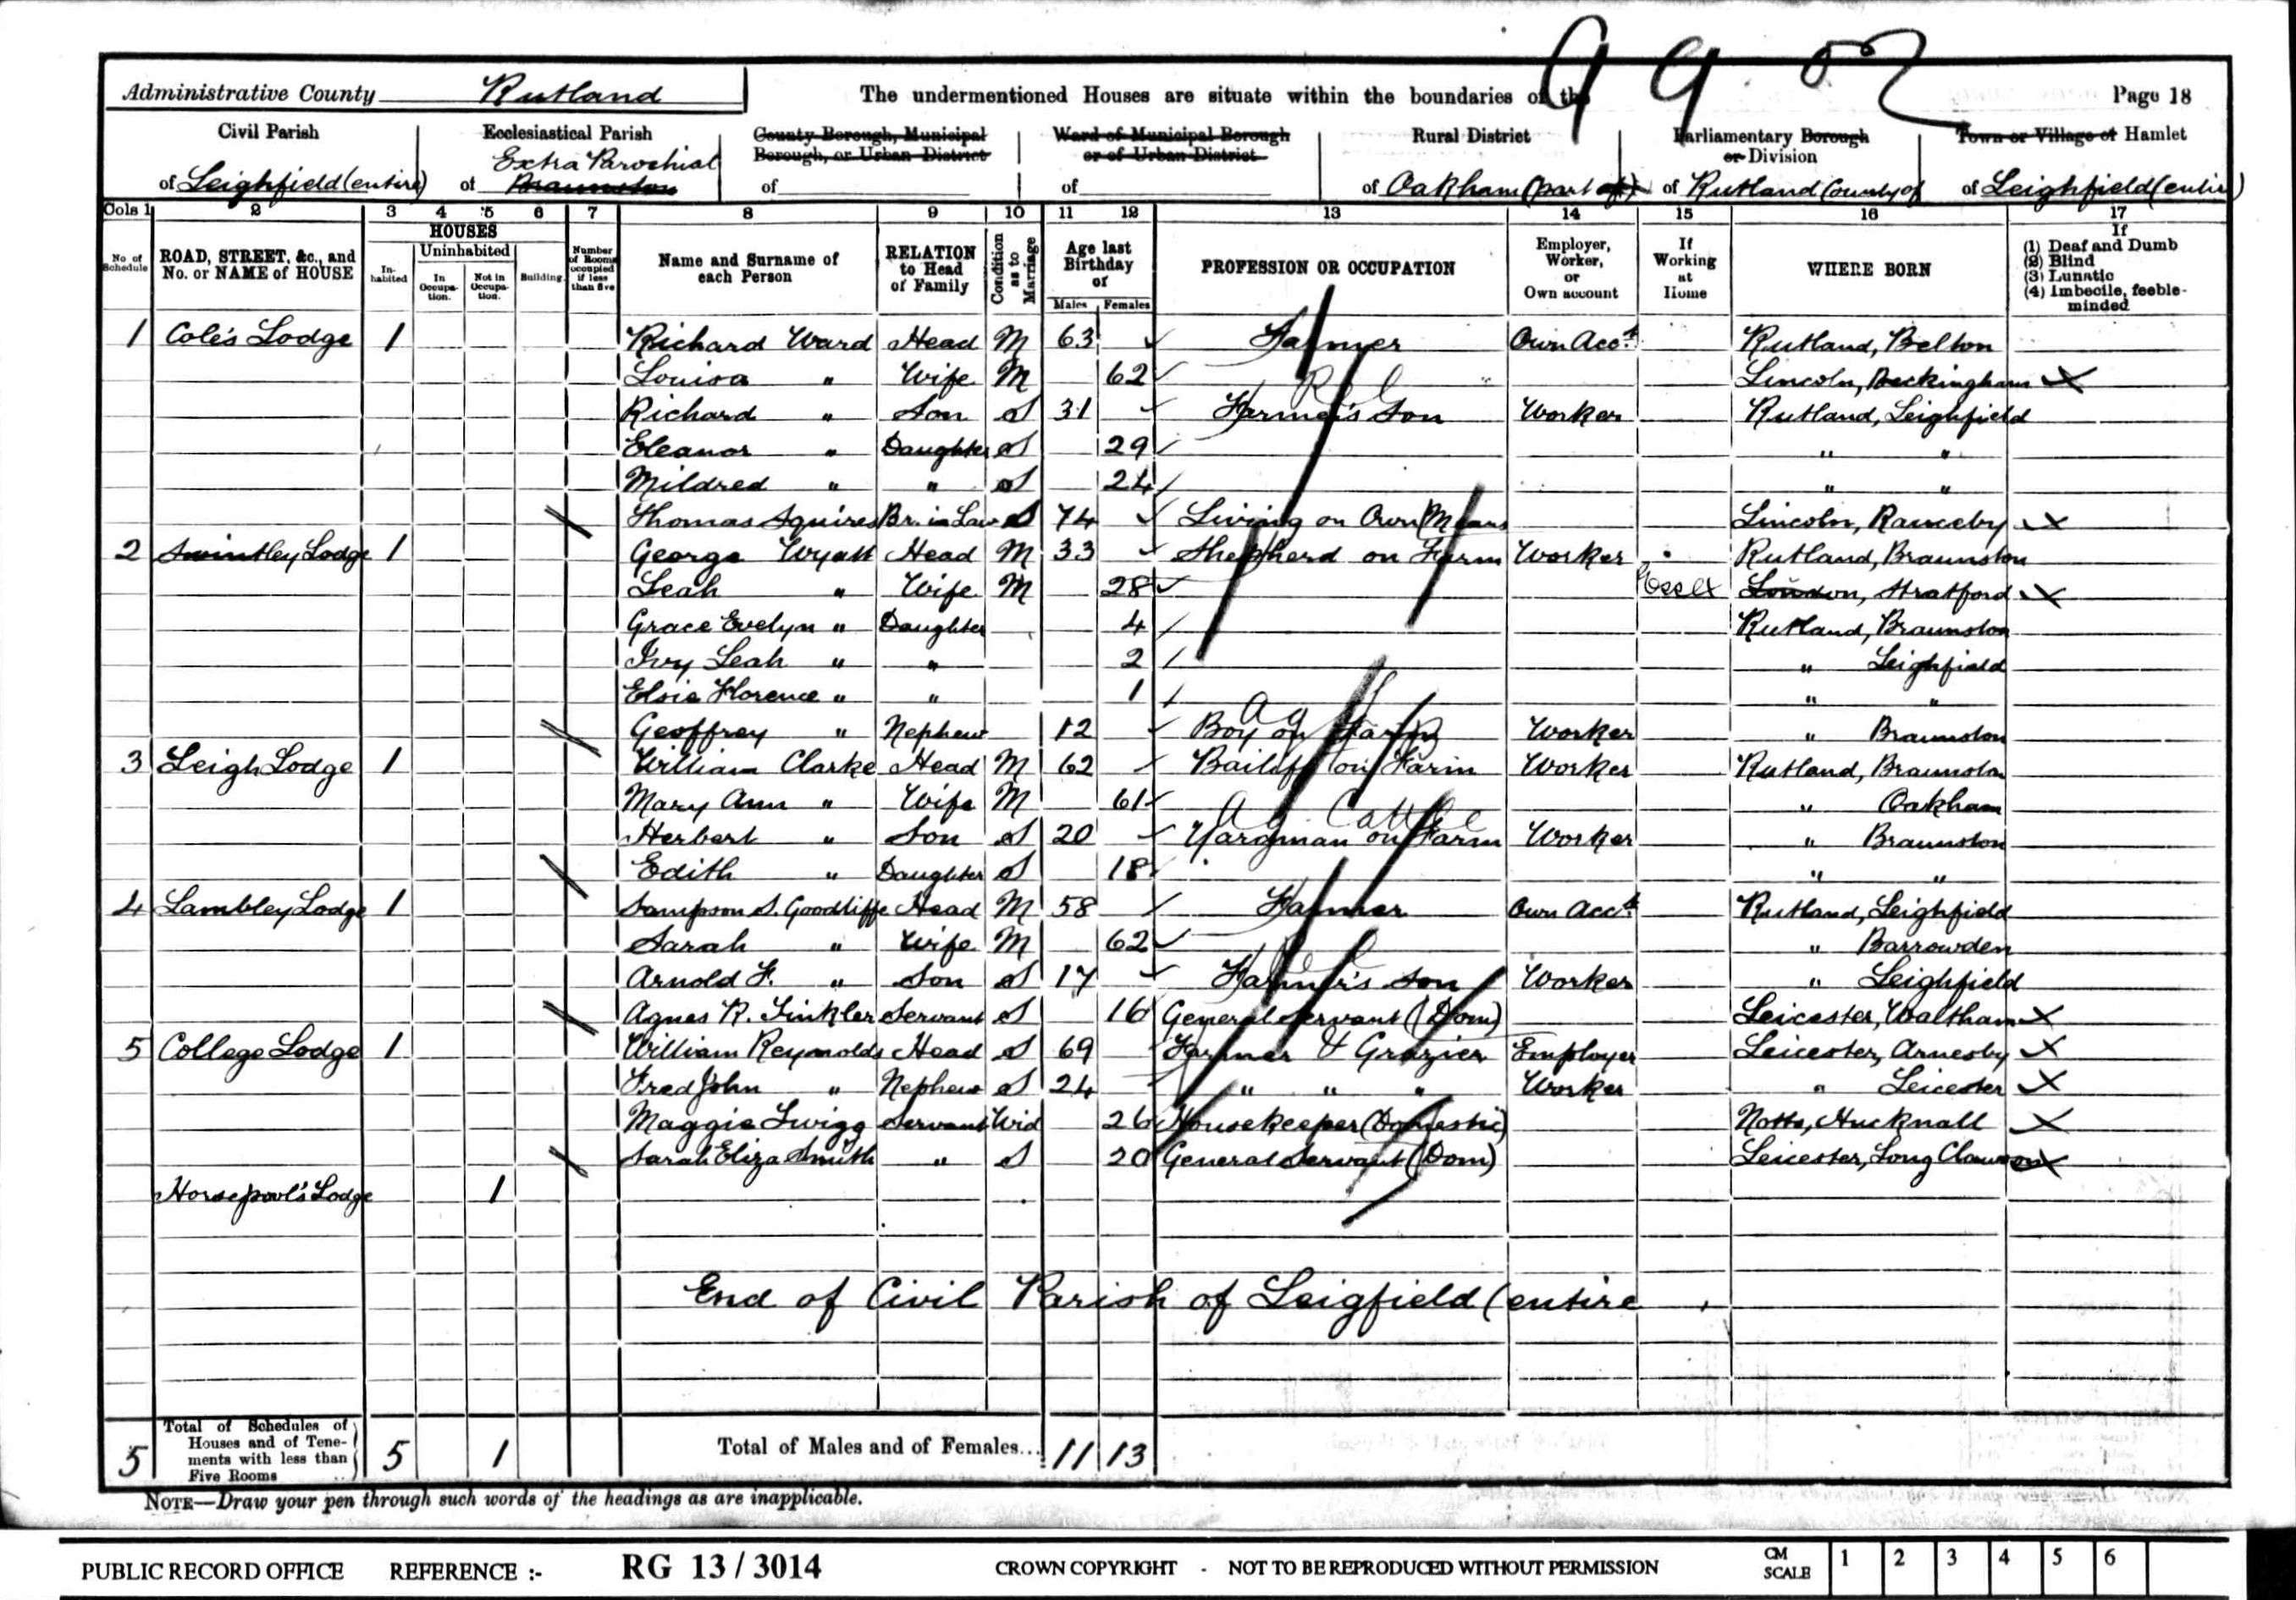 9 9 52
Administrative County Rutland The undermentioned Houses are situate within the boundaries of the Page 18
Civil Parish Ecclesiastical Parish County Borough, Municipal Borough, or Urban District Ward of Municipal Borough or of Urban District Rural District Parliamentary Borough or Division Town or Village of Hamlet
Extra Parochial
of Leighfield (entire) of Braunston of of of Oakham (part of) of Rutland County of of Leighfield (entire)
Cols 1 2 3 4 5 6 7 8 9 10 11 12 13 14 15 16 17
No of Schedule ROAD, STREET, &c., and No. or NAME of HOUSE HOUSES Inhabited Uninhabited In Occupation. Not in Occupation. Building Number of Rooms occupied if less than five Name and Surname of each Person RELATION to Head of Family Condition as to Marriage Age last Birthday of Males Females PROFESSION OR OCCUPATION Employer, Worker, or Own account If Working at Home WHERE BORN If (1) Deaf and Dumb (2) Blind (3) Lunatic (4) Imbecile, feeble-minded
1 Cole's Lodge 1 Richard Ward Head M 63 Farmer Own Acct. Rutland, Belton
Louisa " Wife M 62 Lincoln, Beckingham
Richard " Son S 31 Farmer's Son Worker Rutland, Leighfield
Eleanor " Daughter S 29 " "
Mildred " " S 24 " "
Thomas Squires Br. in Law S 74 Living on Own Means Lincoln, Rauceby
2 Swintley Lodge 1 George Wyatt Head M 33 Shepherd on Farm Worker Rutland, Braunston
Leah " Wife M 28 Essex London, Stratford
Grace Evelyn " Daughter 4 Rutland, Braunston
Ivy Leah " " 2 " Leighfield
Elsie Florence " " 1 " "
Geoffrey " Nephew 12 Ag Boy on Farm Worker " Braunston
3 Leigh Lodge 1 William Clarke Head M 62 Bailiff on Farm Worker Rutland, Braunston
Mary Ann " Wife M 61 " Oakham
Herbert " Son S 20 Ag Cattle Yardman on Farm Worker " Braunston
Edith " Daughter S 18 " "
4 Lambley Lodge 1 Sampson S. Goodliffe Head M 58 Farmer Own Acct. Rutland, Leighfield
Sarah " Wife M 62 " Barrowden
Arnold F. " Son S 17 Farmer's Son Worker " Leighfield
Agnes R. Tinkler Servant S 16 General Servant (Dom) Leicester, Waltham
5 College Lodge 1 William Reynolds Head S 69 Farmer & Grazier Employer Leicester, Arnesby
Fred John " Nephew S 24 " " " Worker " Leicester
Maggie Twigg Servant Wid 26 Housekeeper (Domestic) Notts, Hucknall
Sarah Eliza Smith " S 20 General Servant (Dom) Leicester, Long Clawson
Horsepool's Lodge 1
End of Civil Parish of Leigfield (entire
5 Total of Schedules of Houses and of Tenements with less than Five Rooms 5 1 Total of Males and of Females... 11 13
NOTE—Draw your pen through such words of the headings as are inapplicable.
PUBLIC RECORD OFFICE REFERENCE :- RG 13 / 3014 CROWN COPYRIGHT - NOT TO BE REPRODUCED WITHOUT PERMISSION CM SCALE 1 2 3 4 5 6